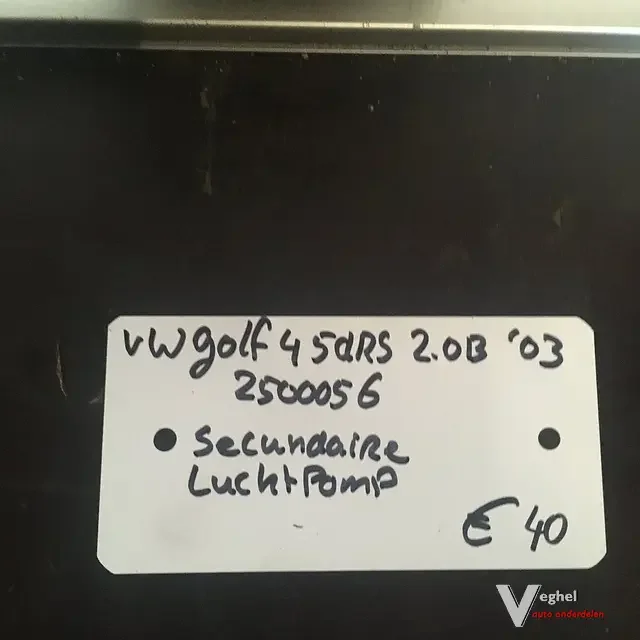 VW golf 4 5dRS 2.0B '03
2500056
Secundaire
Luchtpomp
€ 40
Veghel
auto onderdelen